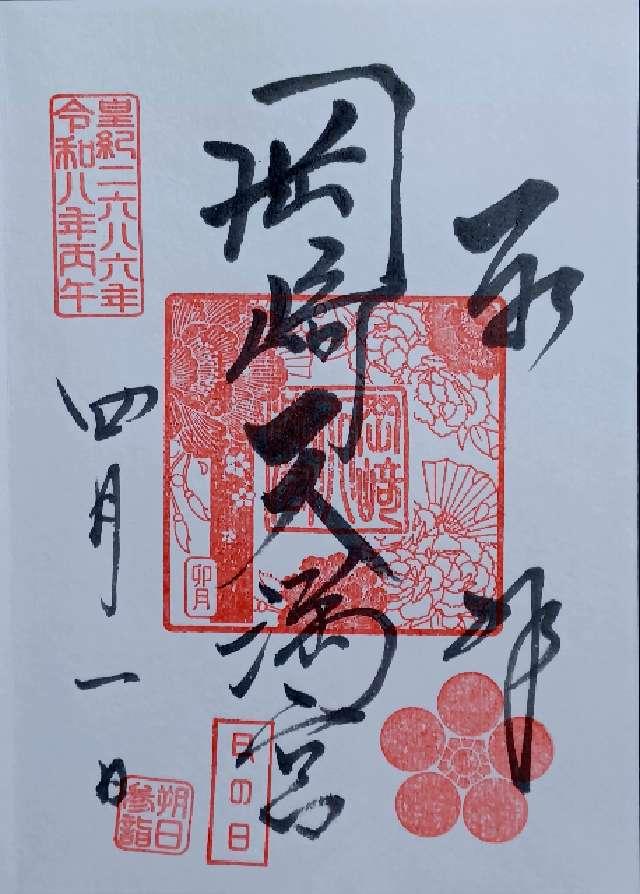 奉拝
岡崎天満宮
皇紀二六八六年
令和八年丙午
四月一日
岡崎
卯月
巳の日
朔日
参詣